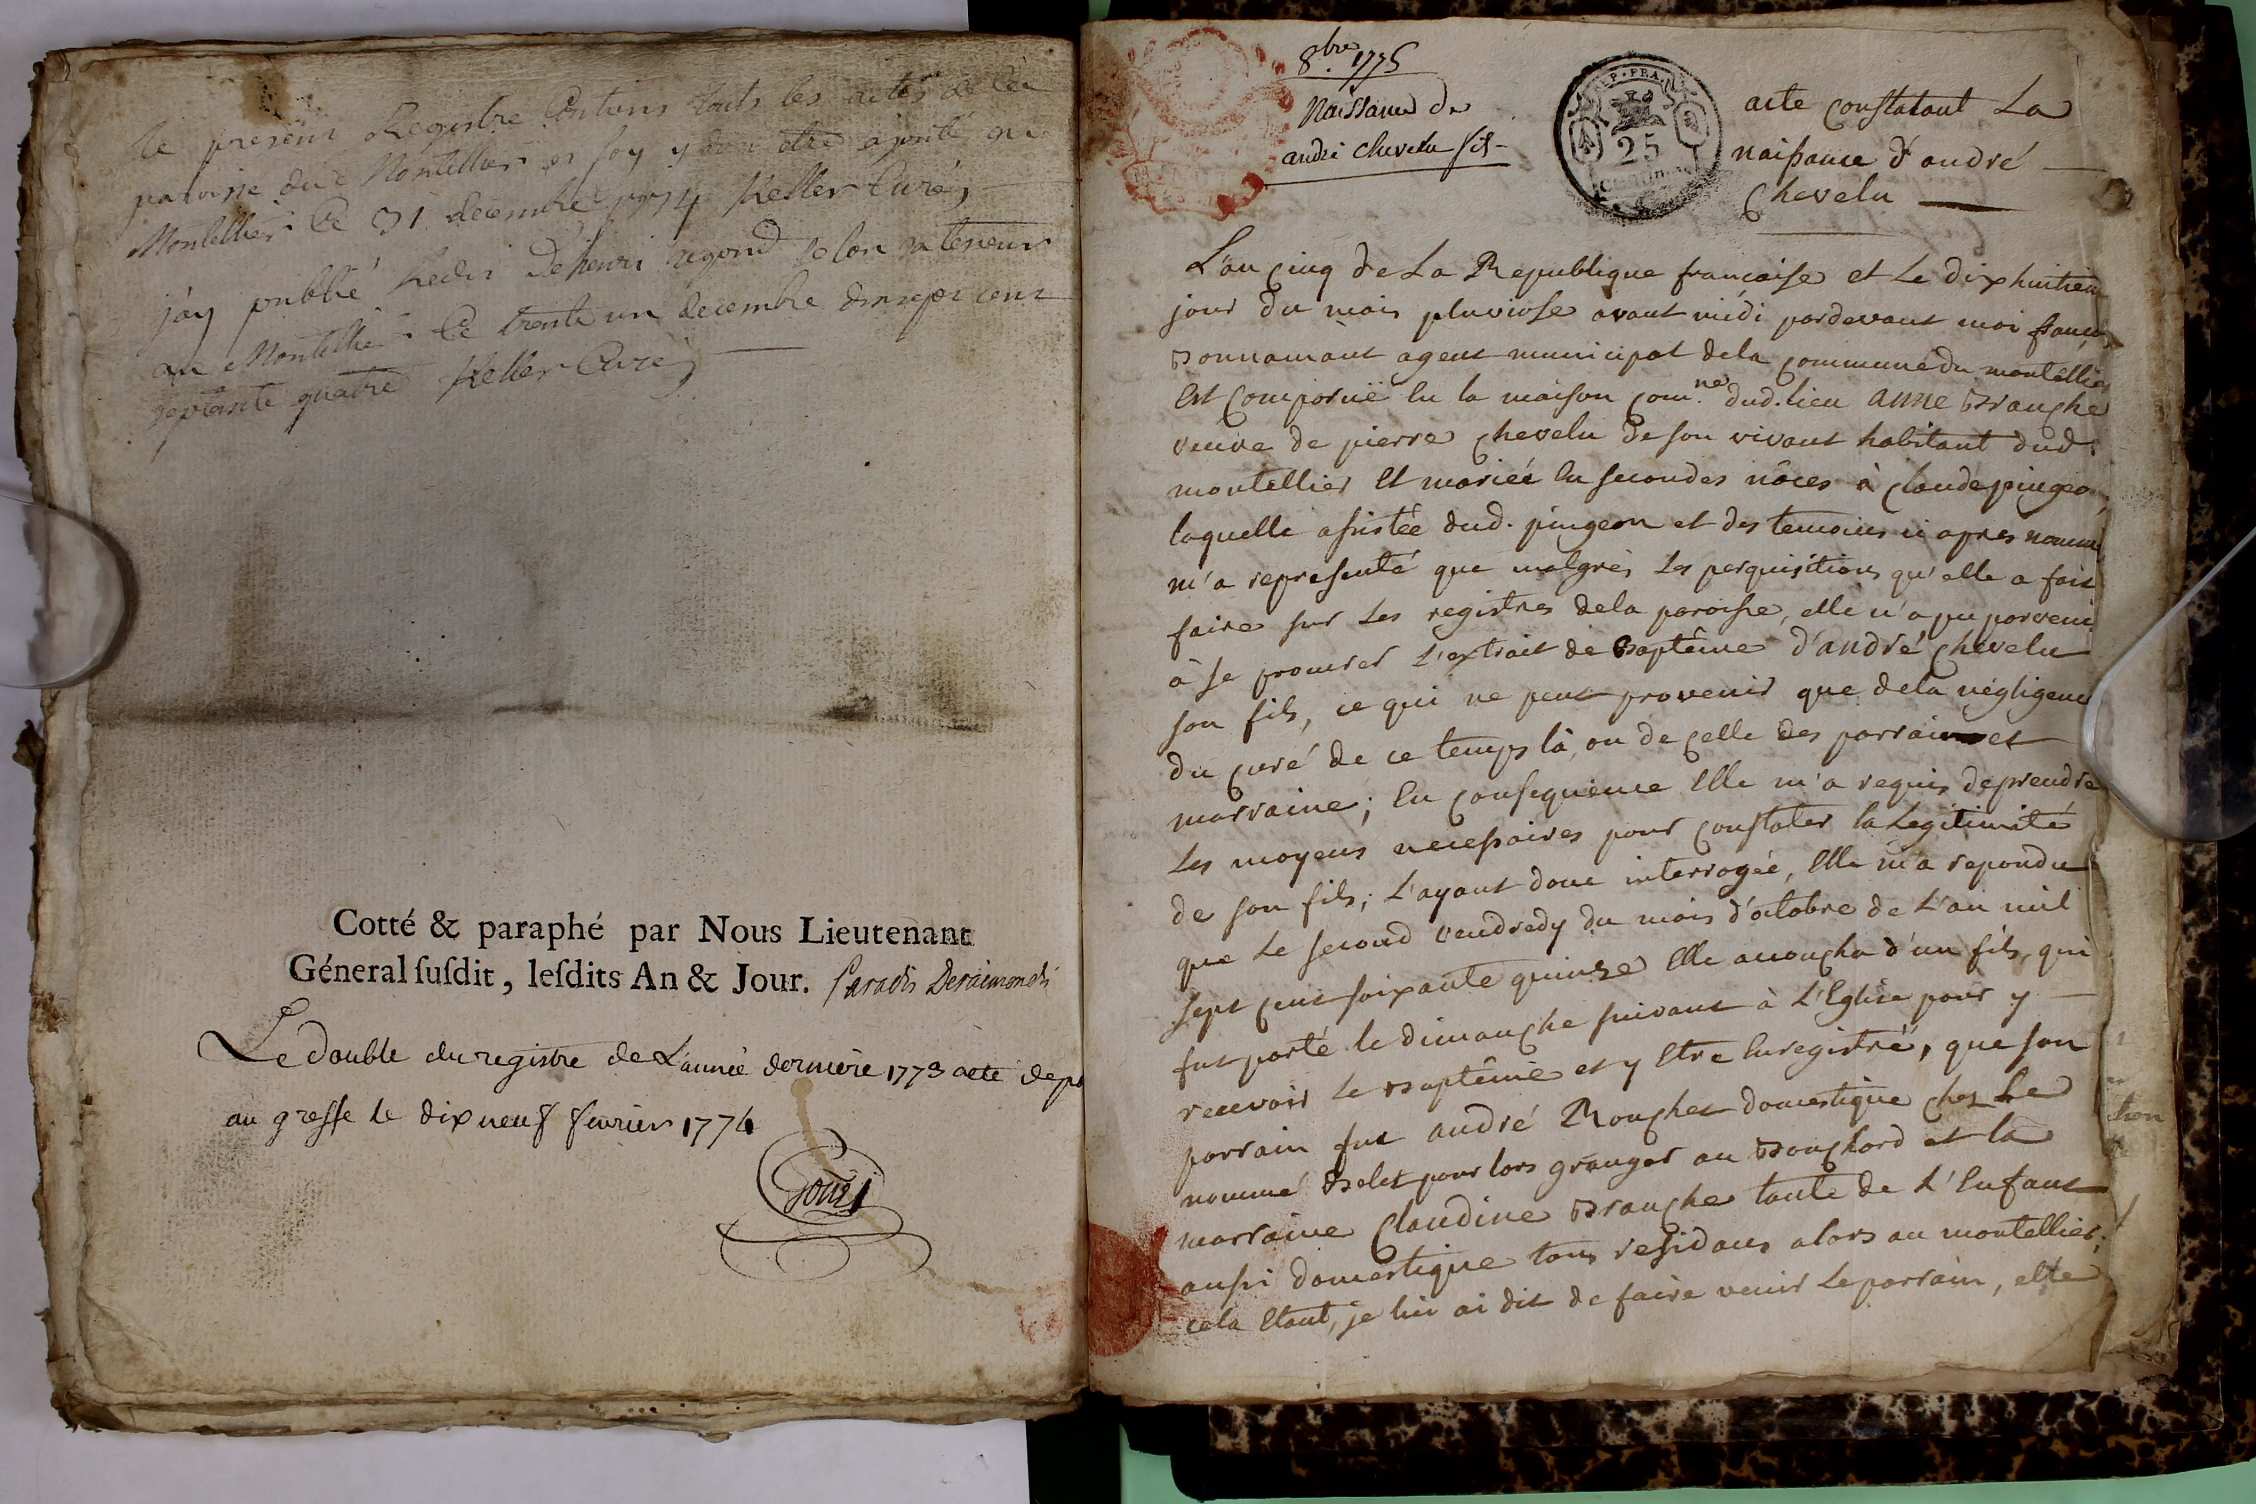 le present Registre Contient touts les actes de la
paroisse du Montellier et foy y doit etre ajouté au
Montellier Ce 31 decembre 1774 Keller Curé
j'ay publié l'edit De henri segond selon sa teneur
au Montellier Ce trente un decembre mil sept cent
septante quatre Keller Curé
Cotté & paraphé par Nous Lieutenant
Géneral ſuſdit, leſdits An & Jour. Paradis Deraimondis
Le double du registre de L'année derniere 1773 a eté depo
au greffe le dix neuf fevrier 1774
8bre 1775
Naissance de
andré chevelu fils
REP. FRA.
25
acte constatant La
naissance d'andré
Chevelu
L'an cinq de La Republique francaise et Le dixhuitiem
jour du mois pluviose avant midi pardevant moi franço
Bonnamant agent municipal dela commune du montellier
Est Comparuë En la maison com.ne dud. lieu anne Branche
veuve de pierre chevelu de son vivant habitant dud.
montellier Et mariée En secondes nôces à Claude pingeon,
laquelle assistée dud. pingeon et des temoins ci apres nommé
m'a representé que malgrés Les perquisitions qu'elle a fait
faire sur Les registres dela paroisse, elle n'a pu parvenir
à se procurer L'extrait de Baptême d'andré chevelu
son fils, ce qui ne peut provenir que dela négligence
du curé de ce temps là, ou de celle des parrain et
marraine; En conséquence Elle m'a requis de prendre
Les moyens necessaires pour constater la Legitimité
de son fils; L'ayant donc interrogée, Elle m'a repondu
que Le second vendredy du mois d'octobre de L'an mil
sept cent soixante quinze Elle accoucha d'un fils, qui
fut porté le dimanche suivant à L'Eglise pour y
recevoir Le Baptême et y Etre Enregistré, que son
parrain fut andré Rouchet domestique chez Le
nommé Bolet pour lors granger au Bouchard et la
marraine Claudine Branche tante de L'Enfant
aussi domestique tous residans alors au montellier;
cela Etant, je lui ai dit de faire venir Le parrain, elle